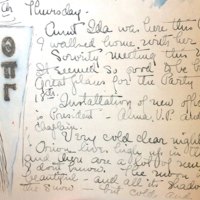 th Thursday.
Aunt Ida was here this
I walked home with her
Sorority meeting this
It seemed so good to be
Great plans for the Party
Installation of new off
is President - Alma, V.P. and
Chaplain.
Very cold clear night
Orion lives high up in
and there are a lot of
I don't know. The
beautiful - and all its shadow
the snow - but cold and